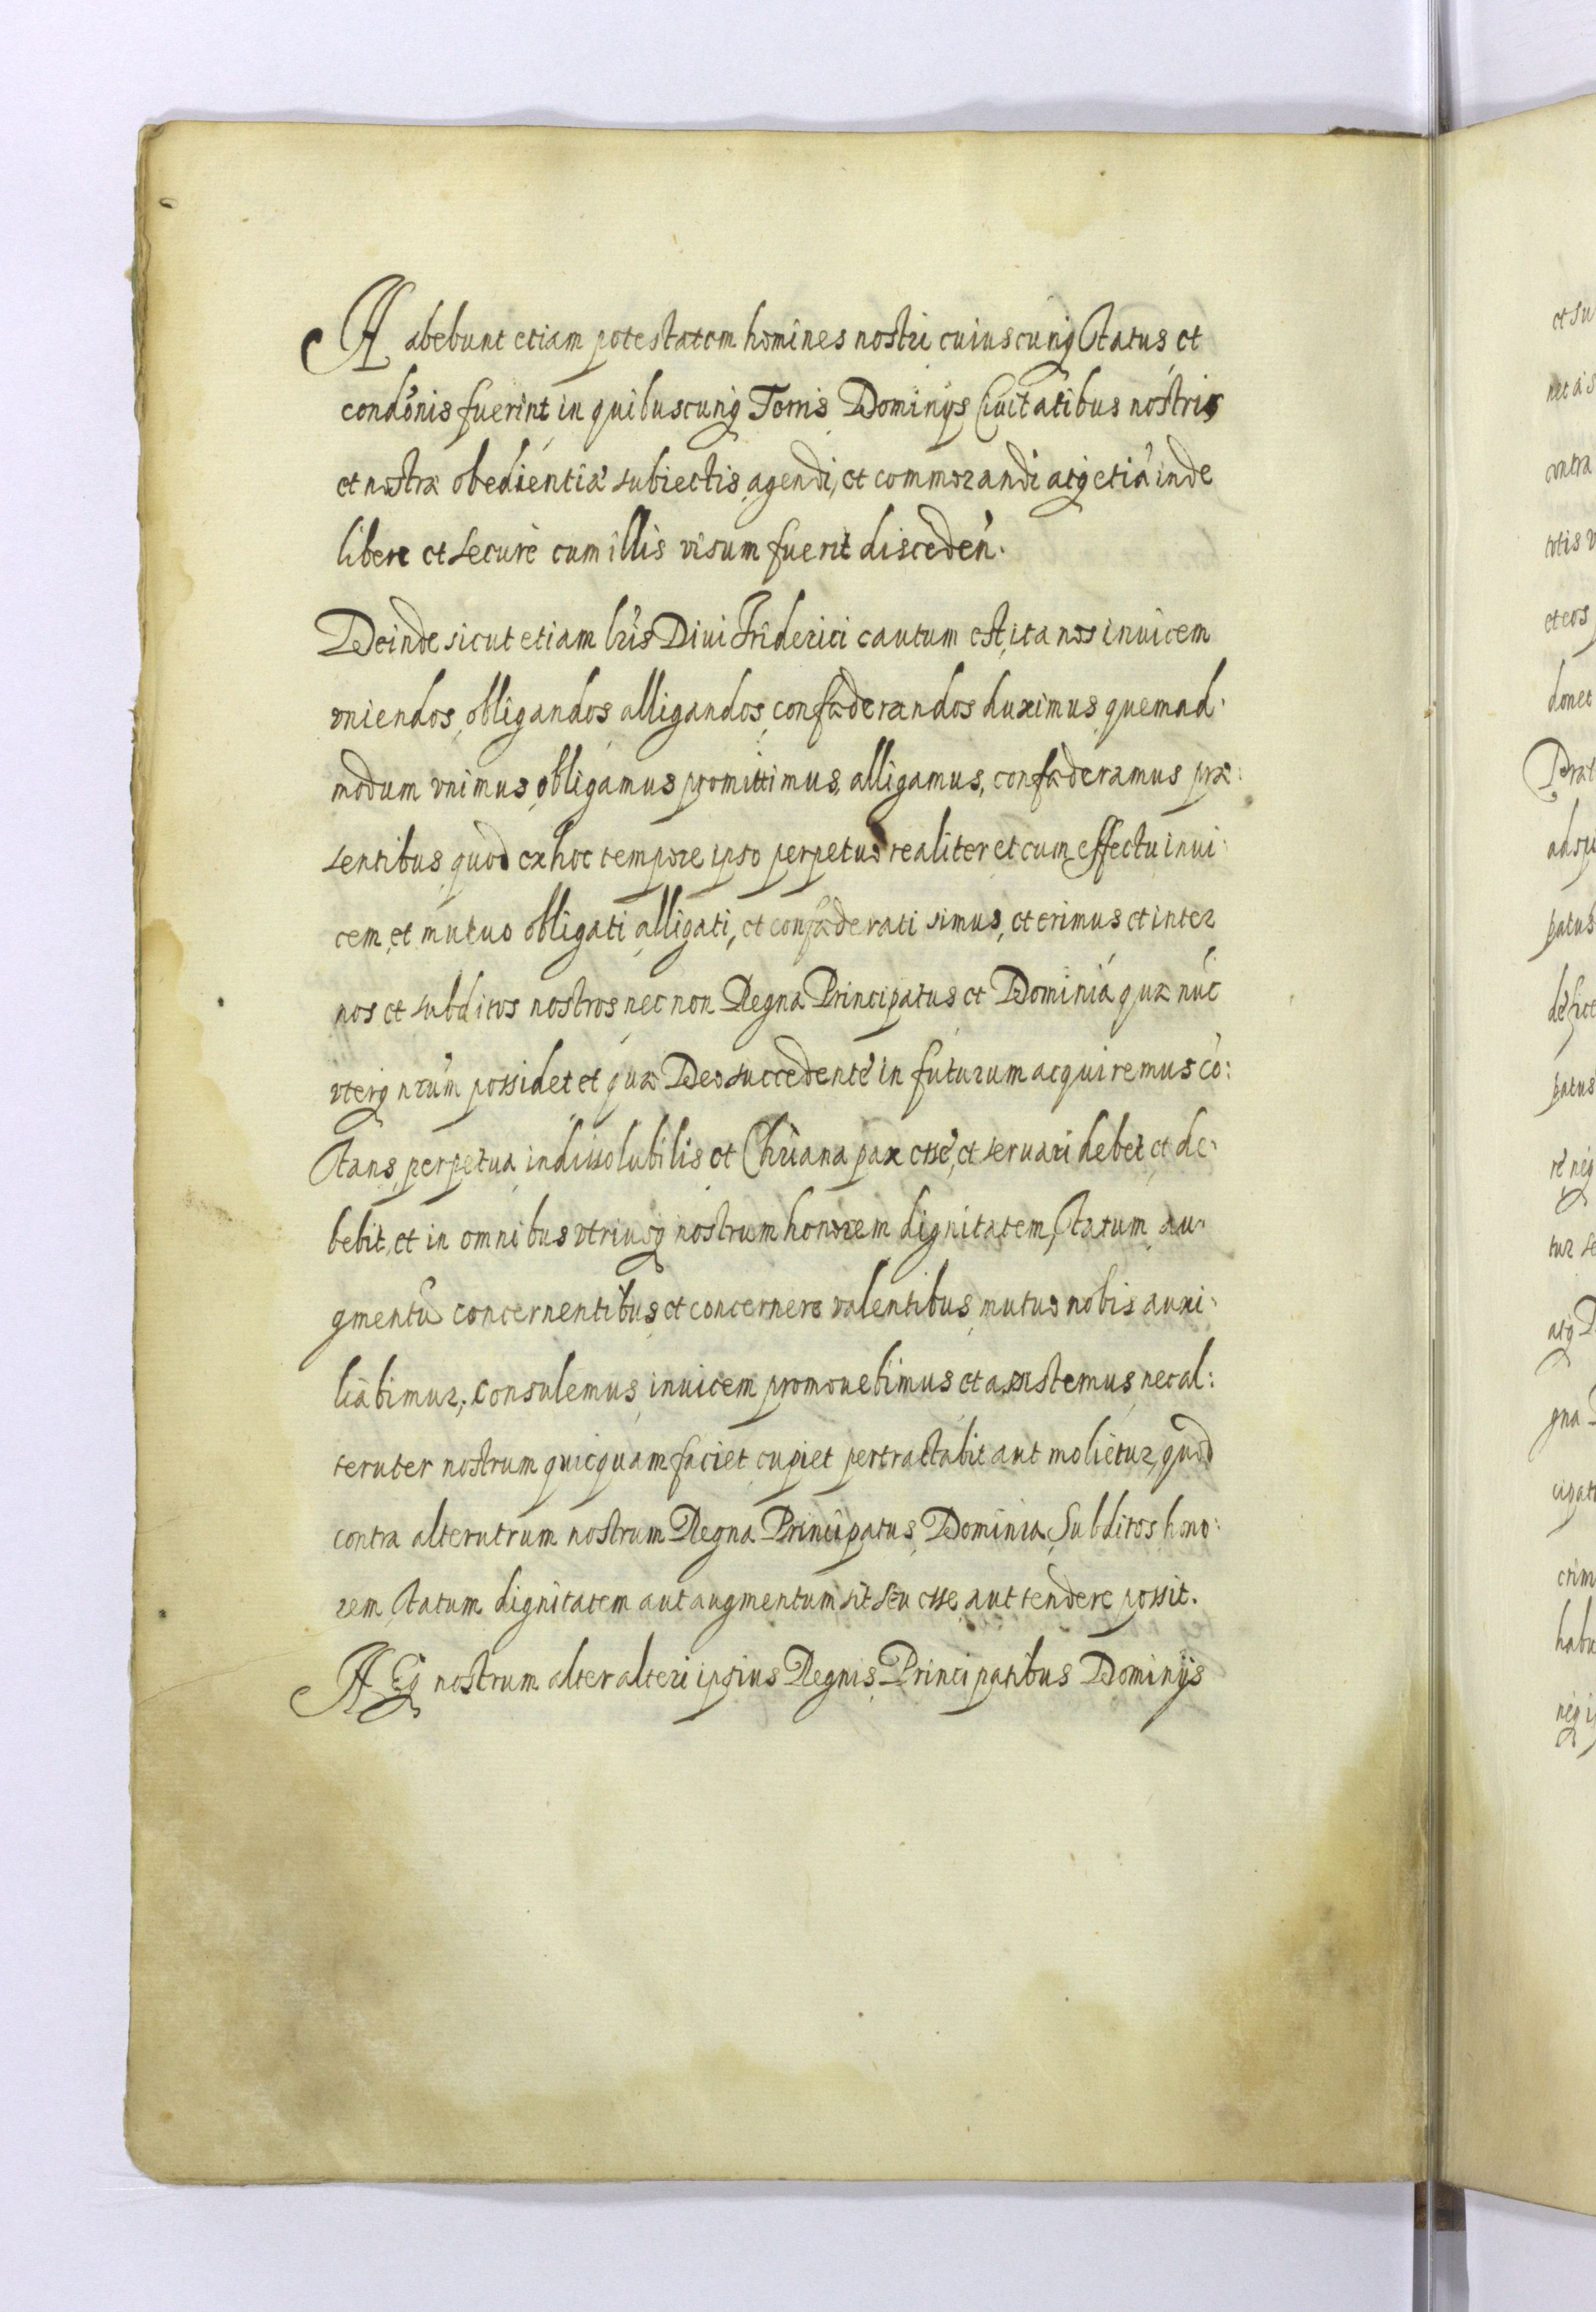 Habebunt etiam potestatem homines nostri cuiuscunq Status et
condõnis fuerint in quibuscunq Terris Dominijs Ciuitatibus nostris
et nostræ obedientiæ subiectis, agendi, et commorandi atq etiã inde
libere et secure cum illis visum fuerit disceden̄.
Deinde sicut etiam lr̃is Diui Friderici cautum est, ita nos inuicem
vniendos, obligandos alligandos, confæderandos duximus, quemad:
modum vnimus, obligamus promittimus, alligamus, confæderamus præ:
sentibus, quod ex hoc tempore ipso perpetuo realiter et cum effectu inui:
cem, et mutuo obligati, alligati, et confæderati simus, et erimus et inter
nos et subditos nostros nec non Regna Principatus et Dominia quæ nuc̃
vterq nr̃um possidet et quæ Deo succedente in futurum acquiremus cõ:
stans, perpetua, indissolubilis et Chr̃iana pax esse, et seruari debet et de:
bebit, et in omnibus vtriusq nostrum honorem dignitatem, Statum au:
gmentũ concernentibus, et concernere valentibus, mutuo nobis auxi:
liabimur, consulemus, inuicem promouebimus et assistemus, nec al:
teruter nostrum quicquam faciet cupiet pertractabit aut molietur, quod
contra alterutrum nostrum Regna Principatus, Dominia, Subditos, hono:
rem, Statum, dignitatem aut augmentum sit seu esse, aut tendere possit.
AEq nostrum alter alteri ipsius Regnis, Principatibus Dominijs